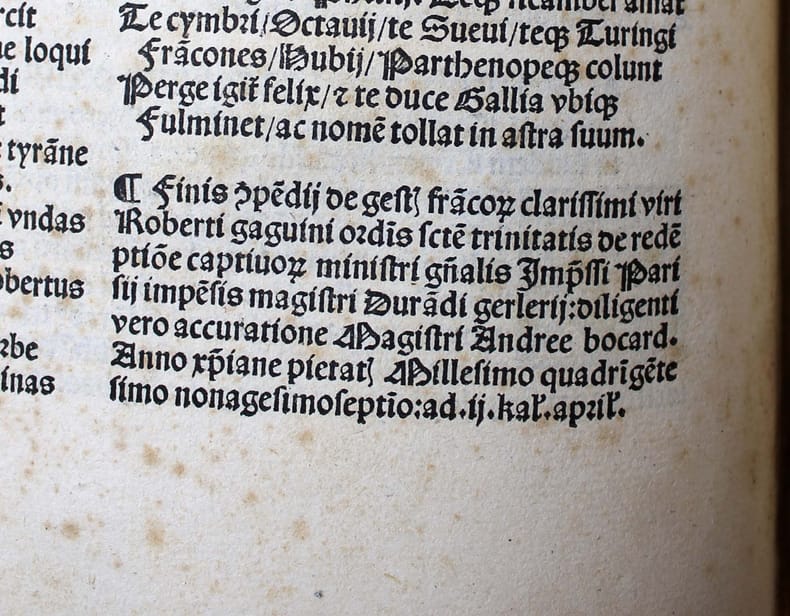 rcit
ne loqui
di
t
tyrãne
s.
vndas
s
obertus
ꝛbe
inas
Te cymbri/Octauij/te Sueui/teqꝫ Turingi
Frãcones/Hubij/Parthenopeqꝫ colunt
Perge igit̃ felix/⁊ te duce Gallia vbiqꝫ
Fulminet/ac nomẽ tollat in aſtra ſuum.
¶ Finis ꝯpẽdij de geſtꝭ frãcoꝝ clariſſimi viri
Roberti gaguini oꝛdĩs ſctẽ trinitatis de redẽ
ptiõe captiuoꝝ miniſtri gñalis Jmp̃ſſi Pari
ſij impẽſis magiſtri Durãdi gerlerij:diligenti
vero accuratione Magiſtri Andree bocard.
Anno xp̃iane pietatꝭ Milleſimo quadrĩgẽte
ſimo nonageſimoſeptĩo:ad.ij.kal̃.apꝛil̃.